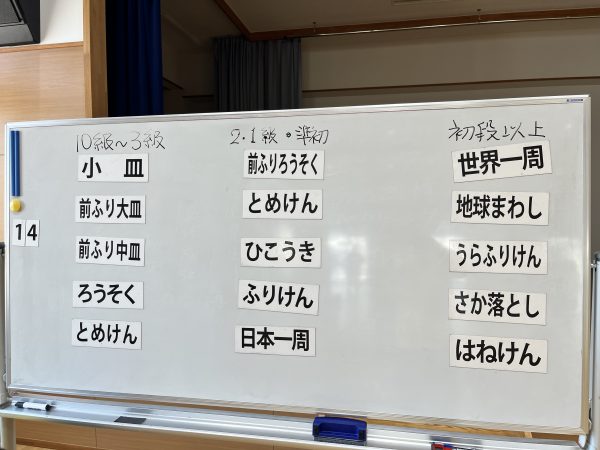 10級～3級
小皿
前ふり大皿
前ふり中皿
ろうそく
とめけん
2・1級・準初
前ふりろうそく
とめけん
ひこうき
ふりけん
日本一周
初段以上
世界一周
地球まわし
うらふりけん
さか落とし
はねけん
14